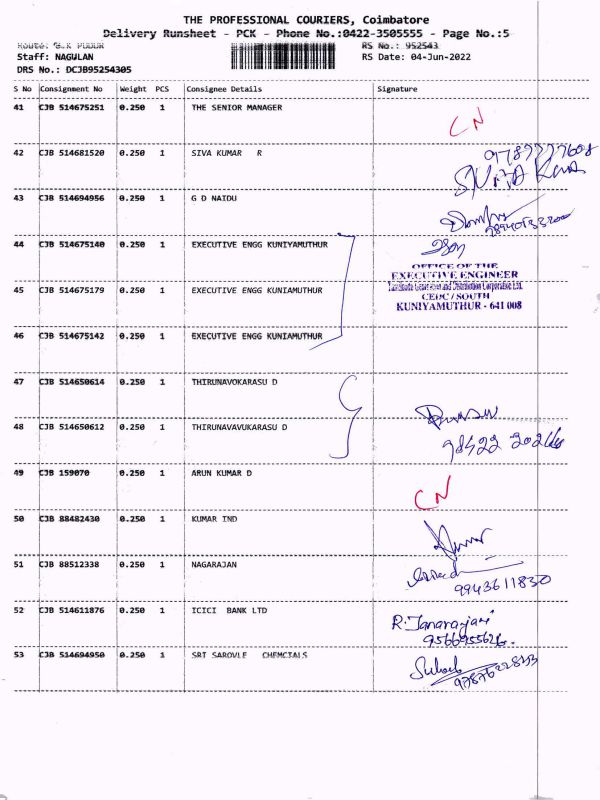 THE PROFESSIONAL COURIERS, Coimbatore
Delivery Runsheet - PCK - Phone No.:0422-3505555 - Page No.:5
Route: B.K PUDUR RS No.: 952543
Staff: NAGULAN RS Date: 04-Jun-2022
DRS No.: DCJB95254305
S No Consignment No Weight PCS Consignee Details Signature
41 CJB 514675251 0.250 1 THE SENIOR MANAGER
CN
42 CJB 514681520 0.250 1 SIVA KUMAR R
43 CJB 514694956 0.250 1 G D NAIDU
44 CJB 514675140 0.250 1 EXECUTIVE ENGG KUNIYAMUTHUR
OFFICE OF THE
EXECUTIVE ENGINEER
Tamilnadu Generation and Distribution Corporative Ltd.
CEDC / SOUTH
KUNIYAMUTHUR - 641 008
45 CJB 514675179 0.250 1 EXECUTIVE ENGG KUNIAMUTHUR
46 CJB 514675142 0.250 1 EXECUTIVE ENGG KUNIAMUTHUR
47 CJB 514650614 0.250 1 THIRUNAVOKARASU D
48 CJB 514650612 0.250 1 THIRUNAVAVUKARASU D
49 CJB 159070 0.250 1 ARUN KUMAR D
CN
50 CJB 88482430 0.250 1 KUMAR IND
51 CJB 88512338 0.250 1 NAGARAJAN
9943611830
52 CJB 514611876 0.250 1 ICICI BANK LTD
53 CJB 514694950 0.250 1 SRT SAROVLE CHEMCIALS